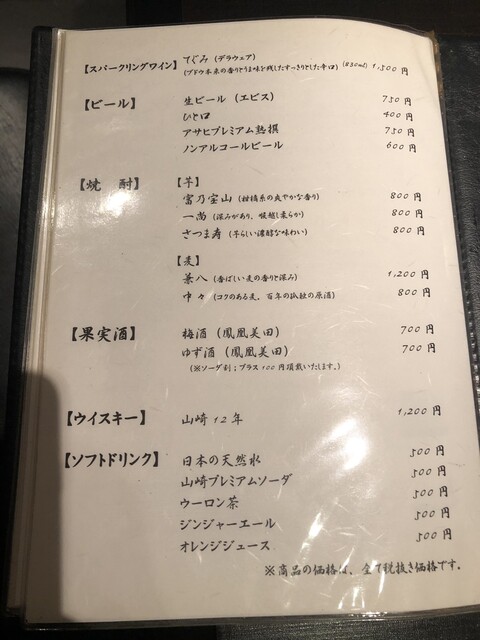 【スパークリングワイン】 てぐみ (デラウェア)
(ブドウ本来の香りとうま味を残したすっきりとした辛口) (830ml) 1,500円
【ビール】 生ビール (エビス) 750円
ひと口 400円
アサヒプレミアム熟撰 750円
ノンアルコールビール 600円
【焼 酎】 【芋】
富乃宝山 (柑橘系の爽やかな香り) 800円
一尚 (深みがあり、喉越し柔らか) 800円
さつま寿 (芋らしい濃醇な味わい) 800円
【麦】
兼八 (香ばしい麦の香りと深み) 1,200円
中々 (コクのある麦。百年の孤独の原酒) 800円
【果実酒】 梅酒 (鳳凰美田) 700円
ゆず酒 (鳳凰美田) 700円
(※ソーダ割;プラス100円頂戴いたします。)
【ウイスキー】 山崎12年 1,200円
【ソフトドリンク】 日本の天然水 500円
山崎プレミアムソーダ 500円
ウーロン茶 500円
ジンジャーエール 500円
オレンジジュース 500円
※商品の価格は、全て税抜き価格です。